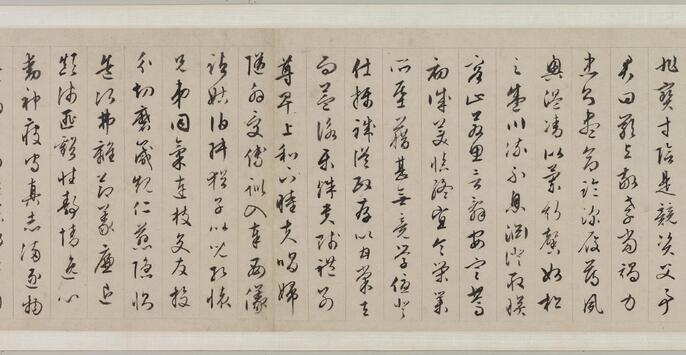 非寶寸陰是競資父事
君曰嚴與敬孝當竭力
忠則盡命臨深履薄夙
興溫凊似蘭斯馨如松
之盛川流不息淵澄取映
容止若思言辭安定篤
初誠美慎終宜令榮業
所基藉甚無竟學優登
仕攝職從政存以甘棠去
而益詠樂殊貴賤禮別
尊卑上和下睦夫唱婦
隨外受傅訓入奉母儀
諸姑伯叔猶子比兒孔懷
兄弟同氣連枝交友投
分切磨箴規仁慈隱惻
造次弗離節義廉退
顛沛匪虧性靜情逸心
動神疲守真志滿逐物